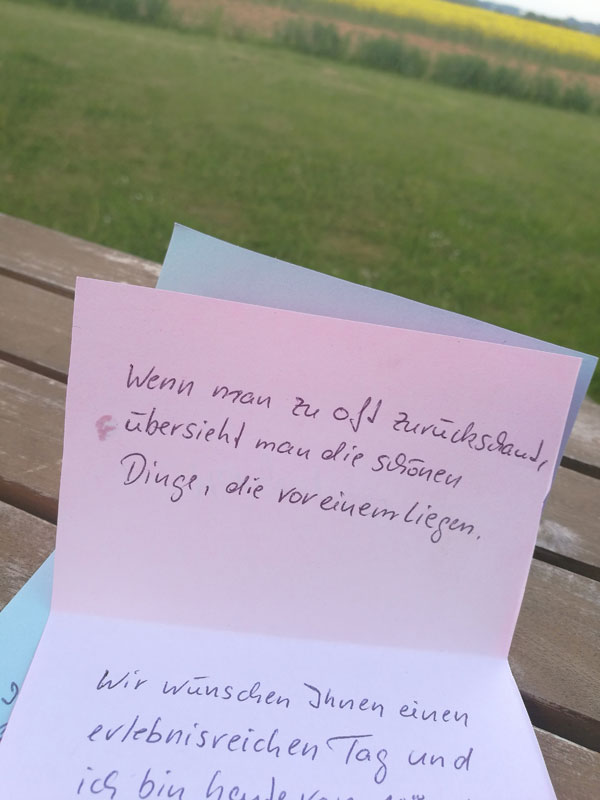 Wenn man zu oft zurückschaut,
übersieht man die schönen
Dinge, die vor einem liegen.
Wir wünschen Ihnen einen
erlebnisreichen Tag und
ich bin heute